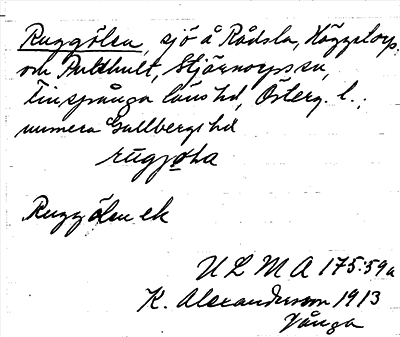 Ruggölen, sjö å Rådsla, Häggetorp,
och Pukhult, Stjärnorps sn,
Finspånga läns hd, Österg. l.;
numera Gullbergs hd
Ruggölen ek
ULMA 175:59a
K. Alexanderson 1913
Vånga